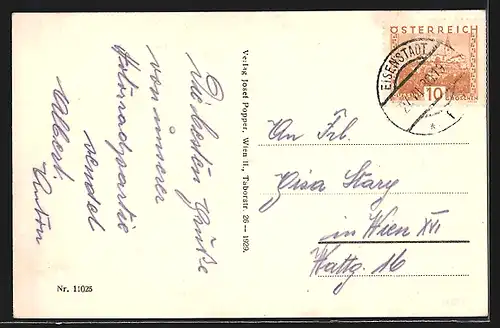 ÖSTERREICH
10 GROSCHEN
EISENSTADT
Die besten Grüße
von unserer
Motorradpartie
sendet
Albert
Anton
Verlag Josef Popper, Wien II., Taborstr. 26 — 1929.
An Frl.
Stary
in Wien XVI
Wattg. 16
Nr. 11025